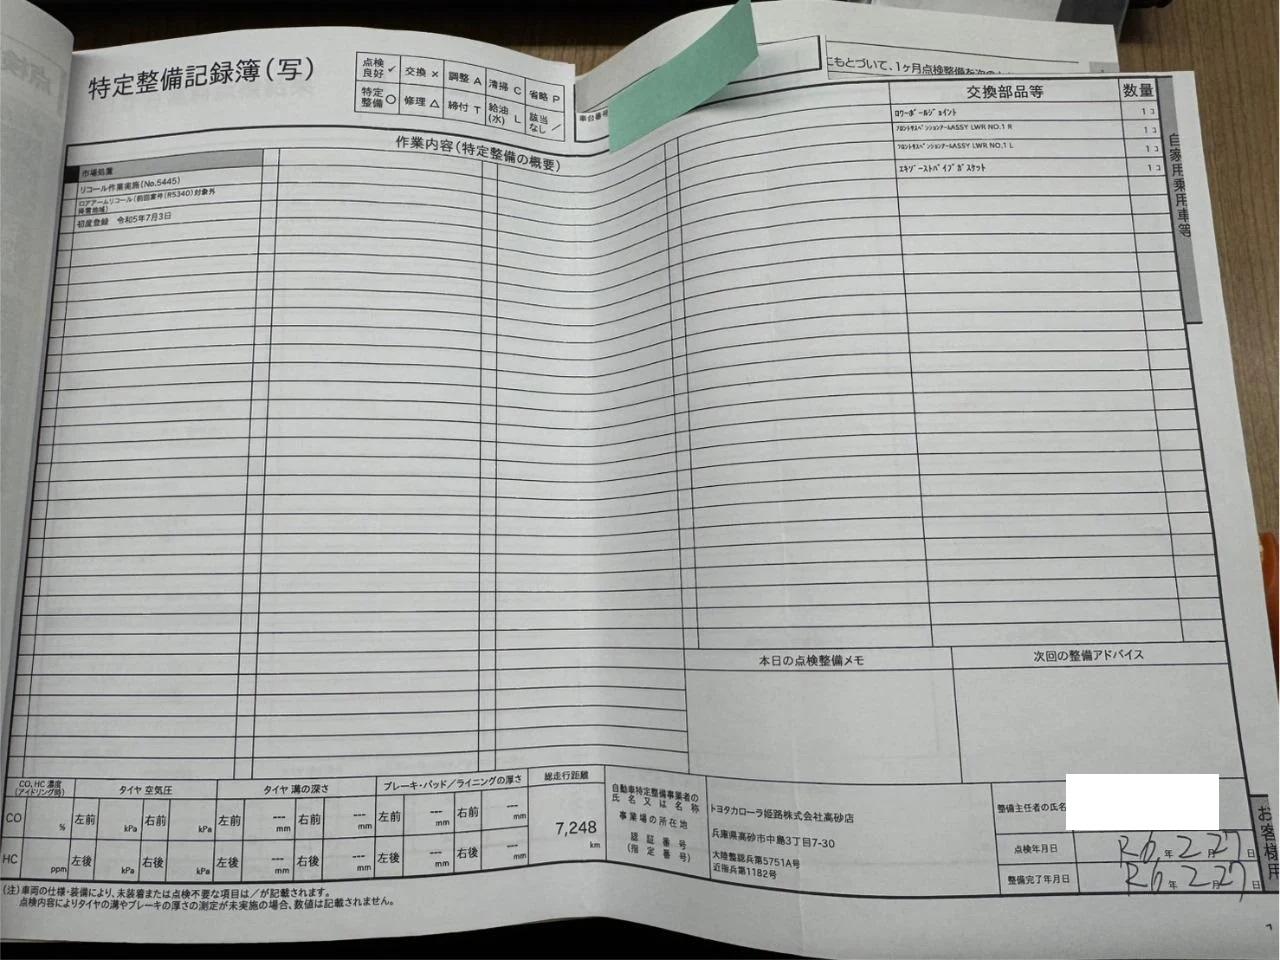 特定整備記録簿(写)
点検良好 ✓ 交換 × 調整 A 清掃 C 省略 P
特定整備 ○ 修理 △ 締付 T 給油(水) L 該当なし /
車台番号
にもとづいて、1ヶ月点検整備を次の
作業内容(特定整備の概要)
交換部品等 数量
市場処置
リコール作業実施(No.5445)
ロアアームリコール(前回案件(R5340)対象外
初度登録 令和5年7月3日
ロワーボールジョイント 1コ
フロントサスペンションアームASSY LWR NO.1 R 1コ
フロントサスペンションアームASSY LWR NO.1 L 1コ
エキゾーストパイプガスケット 1コ
自家用乗用車等
本日の点検整備メモ 次回の整備アドバイス
CO、HC 濃度(アイドリング時) タイヤ 空気圧 タイヤ 溝の深さ ブレーキ・パッド/ライニングの厚さ 総走行距離
CO % 左前 kPa 右前 kPa 左前 --- mm 右前 --- mm 左前 --- mm 右前 --- mm
HC ppm 左後 kPa 右後 kPa 左後 --- mm 右後 --- mm 左後 --- mm 右後 --- mm
7,248 km
自動車特定整備事業者の氏名又は名称 トヨタカローラ姫路株式会社高砂店
事業場の所在地 兵庫県高砂市中島3丁目7-30
認証番号(指定番号) 大陸整認兵第5751A号
近指兵第1182号
整備主任者の氏名
点検年月日 R6年2月27日
整備完了年月日 R6年2月27日
お客様用
(注)車両の仕様・装備により、未装着または点検不要な項目は/が記載されます。
点検内容によりタイヤの溝やブレーキの厚さの測定が未実施の場合、数値は記載されません。